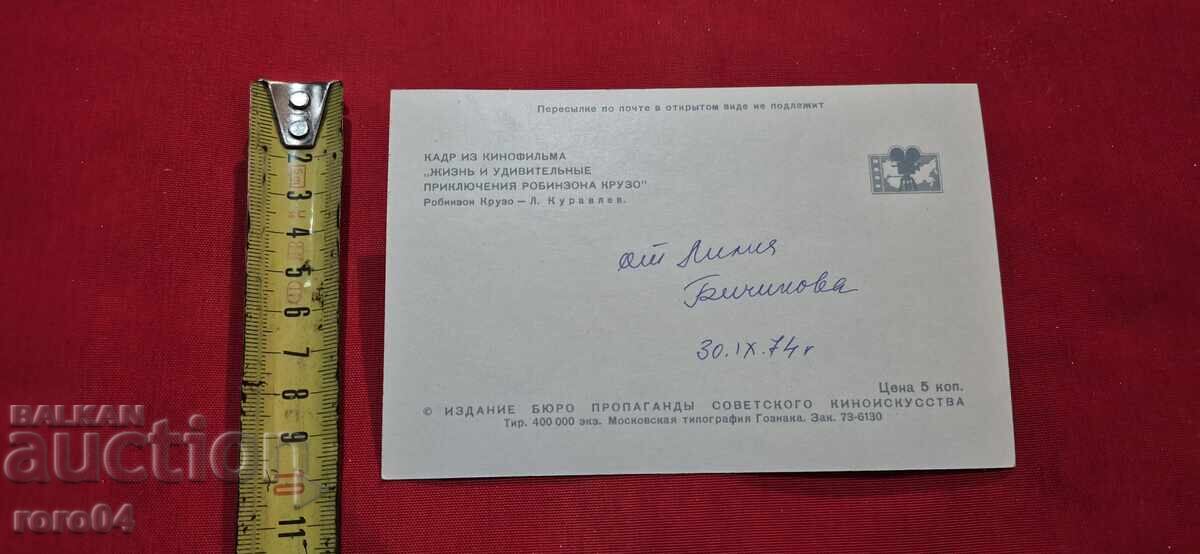 Пересылке по почте в открытом виде не подлежит
КАДР ИЗ КИНОФИЛЬМА
„ЖИЗНЬ И УДИВИТЕЛЬНЫЕ
ПРИКЛЮЧЕНИЯ РОБИНЗОНА КРУЗО"
Робинзон Крузо — Л. Куравлев.
от Лилия
Бичикова
30.IX.74 г
Цена 5 коп.
© ИЗДАНИЕ БЮРО ПРОПАГАНДЫ СОВЕТСКОГО КИНОИСКУССТВА
Тир. 400 000 экз. Московская типография Гознака. Зак. 73-6130
2
3
4
5
6
7
8
9
10
11
BALKAN
auction
roro04